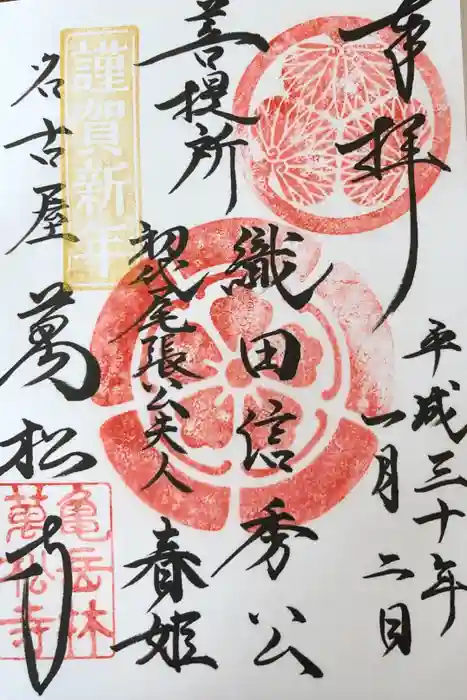 奉拝
平成三十年
一月二日
織田信秀公
菩提所
初代尾張公夫人
春姫
謹賀新年
名古屋
萬松寺
亀岳林
萬松寺